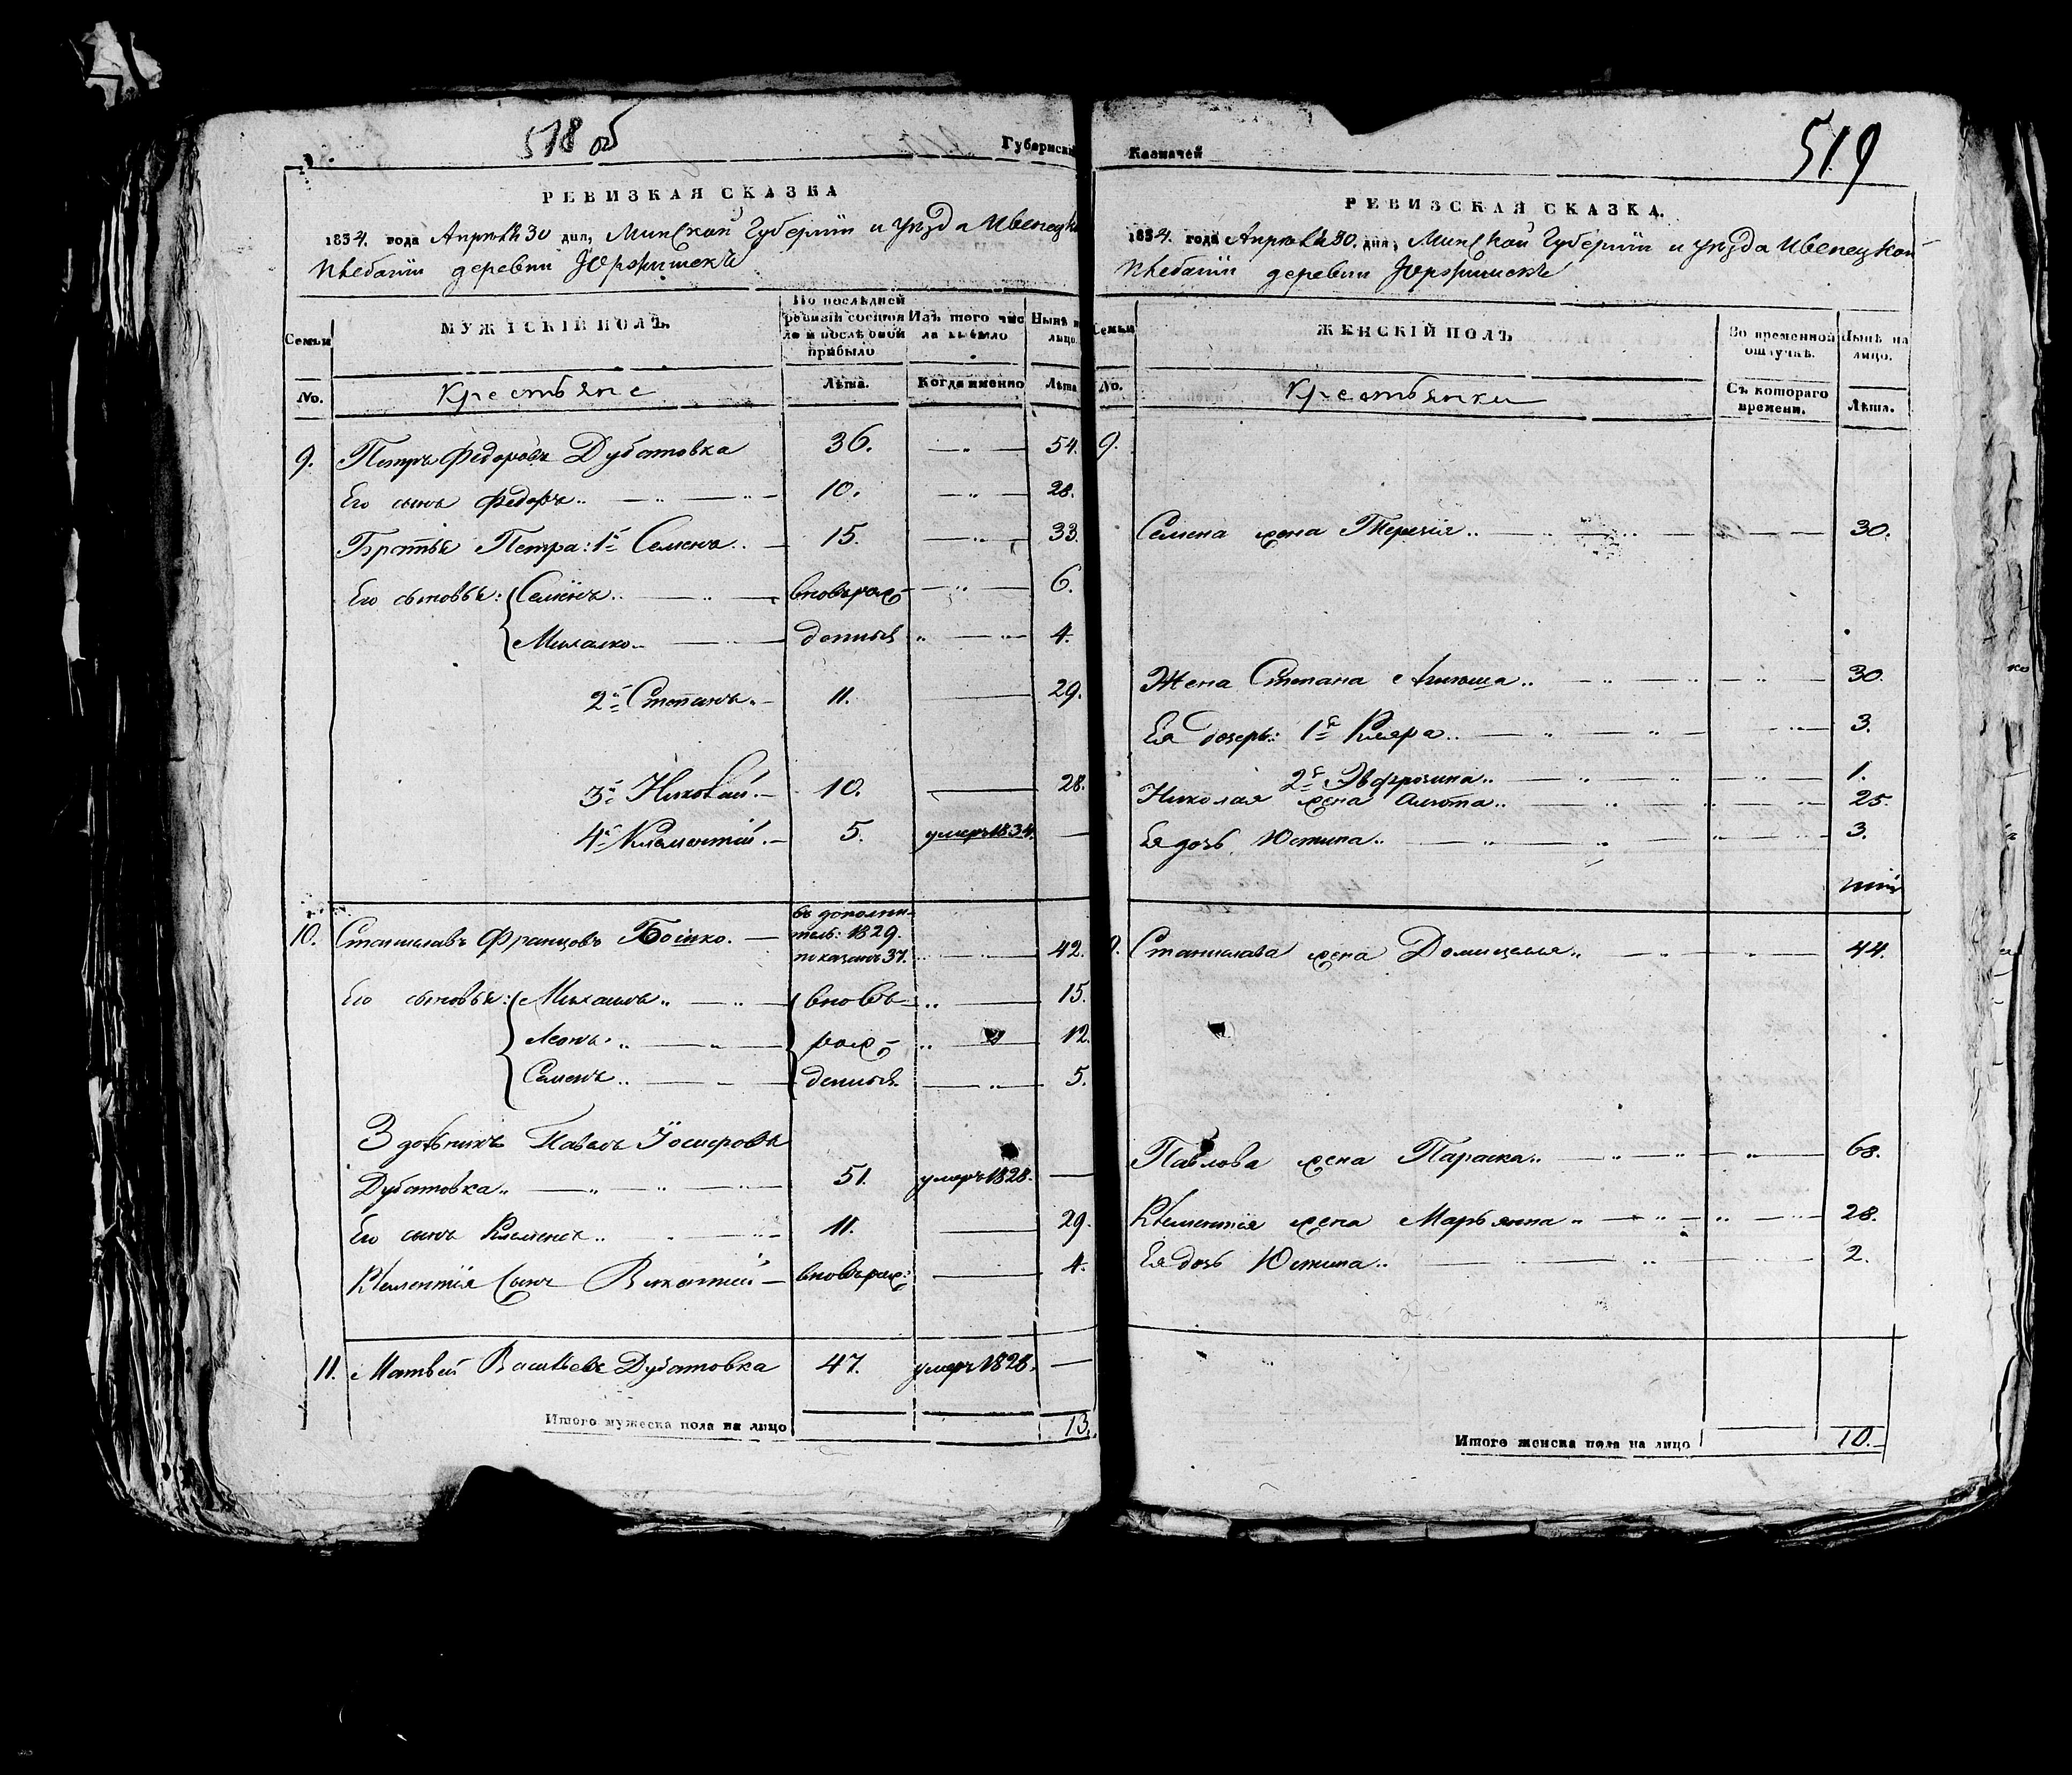 518 об
Губернскій
РЕВИЗКАЯ СКАЗКА
1834. года Апреля 30 дня, Минской Губерніи и уезда Ивенецкой
плебаніи деревни
Семьи
МУЖЕСКІЙ ПОЛЪ.
По последней ревизіи состояло и после оной прибыло
Изъ того числа выбыло
Ныне на лицо
No.
Крестьяне
Лета.
Когда именно
Лета
9. Петръ Федоровъ Дубатовка 36. — " — 54.
Его сынъ Федоръ.. — " — 10. — " — 28.
Братья Петра: 1й Семенъ.. — 15. — " — 33.
Его сыновья: Семенъ.. — " — вноврож — " — 6.
Михалко.. — " — денныя " — " — 4.
2й Степанъ. — 11. — 29.
3й Николай. — 10. — 28.
4й Климентій. — 5. умеръ 1834. —
10. Станиславъ Францовъ Бошко. — въ дополнитель: 1829. показанъ 37. — 42.
Его сыновья: Михаилъ.. — " — вновь — 15.
Леонъ.. — " — рож — 12.
Семенъ.. — " — денныя — " — 5.
Здольникъ Павелъ Іосифовъ
Дубатовка.. — " — 51. умеръ 1828. —
Его сынъ Клеменсъ.. — 11. — 29.
Клементія сынъ Викентій — вноврож: — 4.
11. Матвей Васильевъ Дубатовка 47. умеръ 1828. —
Итого мужеска пола на лицо 13.
Казначей
519
РЕВИЗСКАЯ СКАЗКА.
1834. года Апреля 30. дня, Минской Губерніи и уезда Ивенецкой
плебаніи деревни
Семьи
ЖЕНСКІЙ ПОЛЪ
Во временной отлучке.
Ныне на лицо.
No.
Крестьянки
Съ котораго времени.
Лета.
9.
Семена жена Терезія.. — " — 30.
Жена Степана Агнюша.. — " — 30.
Ея дочерь: 1я Кляра.. — " — 3.
2я Эвфрозина.. — " — 1.
Николая жена Анюта.. — " — 25.
Ея дочь Юстина.. — " — 3.
Станислава жена Домицелля.. — " — 44.
Павлова жена Параска.. — " — 68.
Клементія жена Марьянна.. — " — 28.
Ея дочь Юстина.. — " — 2.
Итого женска пола на лицо 10.